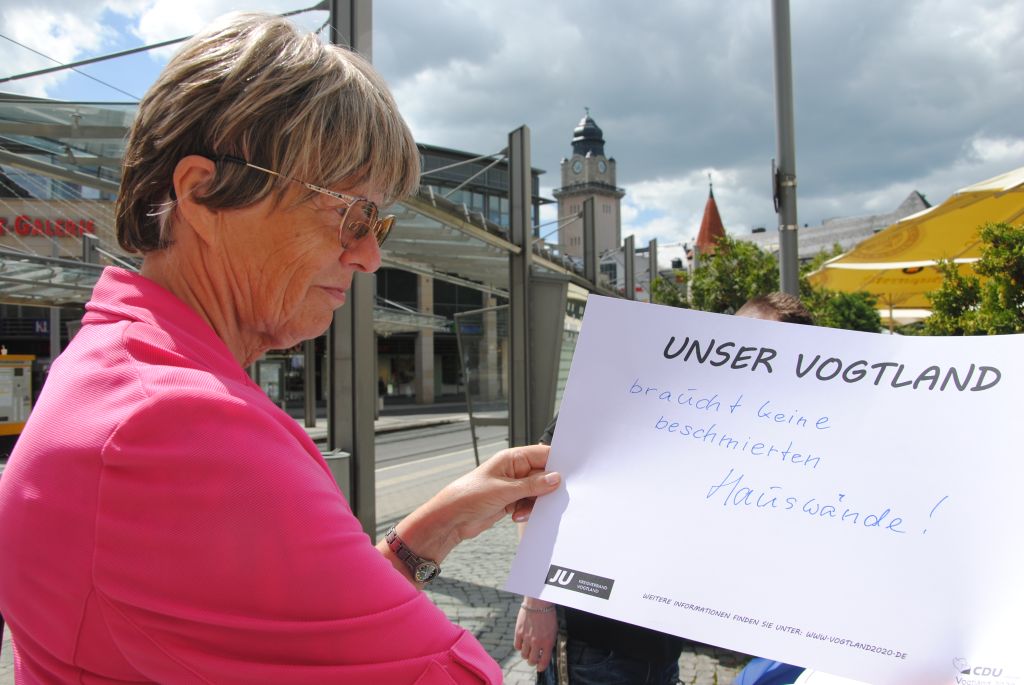 T-GALERIE
UNSER VOGTLAND
braucht keine
beschmierten
Hauswände!
JU KREISVERBAND
VOGTLAND
WEITERE INFORMATIONEN FINDEN SIE UNTER: WWW.VOGTLAND2020.DE
CDU